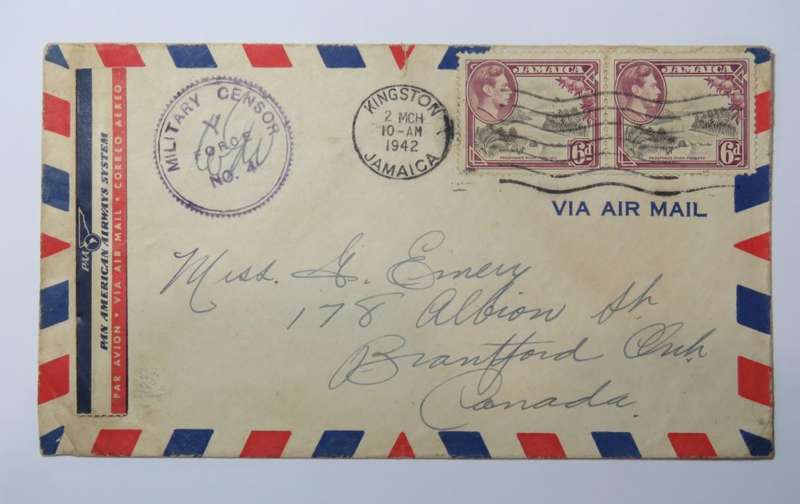 MILITARY CENSOR
Y
FORCE
NO. 4
KINGSTON
2 MCH
10-AM
1942
JAMAICA
JAMAICA
6d
JAMAICA
6d
VIA AIR MAIL
PAA
PAN AMERICAN AIRWAYS SYSTEM
PAR AVION • VIA AIR MAIL • CORREO AEREO
Miss. G. Emery
178 Albion St.
Brantford Ont.
Canada.